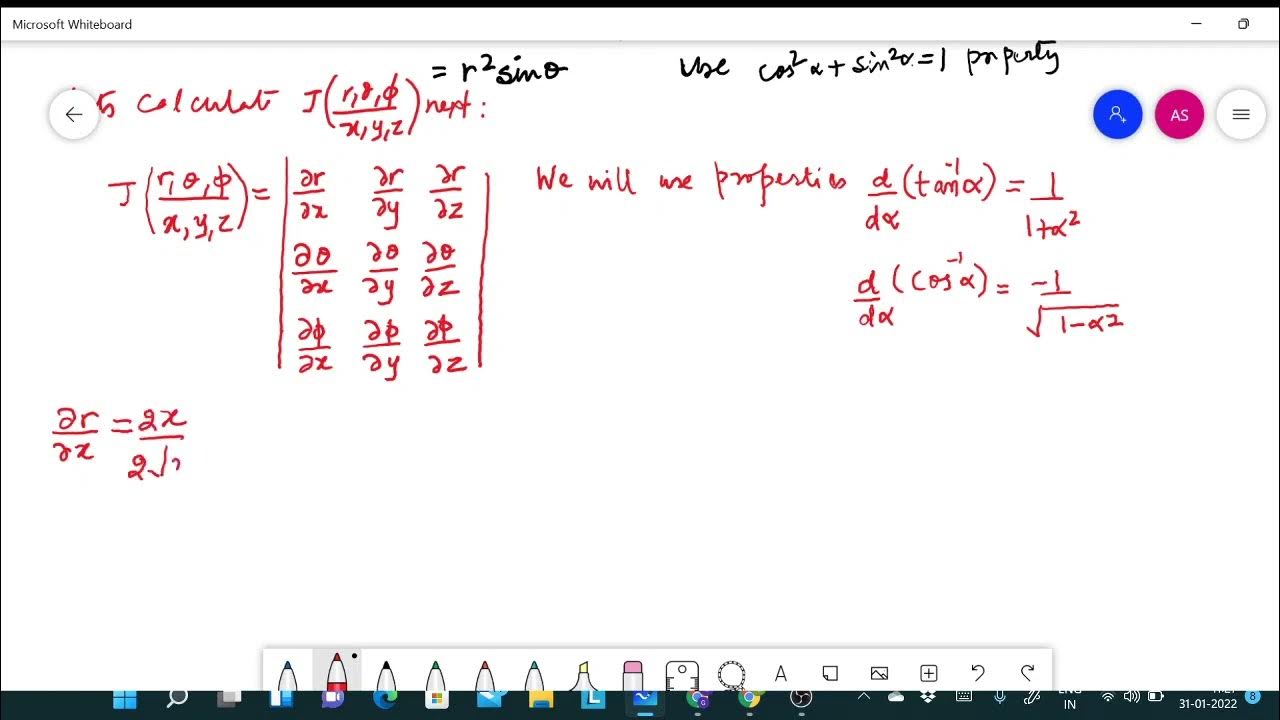 Microsoft Whiteboard
= r² sinθ
Use cos²α + sin²α = 1 property
calculat J(r,θ,ϕ/x,y,z) next:
AS
J(r,θ,ϕ/x,y,z) = | ∂r/∂x ∂r/∂y ∂r/∂z |
| ∂θ/∂x ∂θ/∂y ∂θ/∂z |
| ∂ϕ/∂x ∂ϕ/∂y ∂ϕ/∂z |
We will use properties d/dα (tan⁻¹α) = 1/1+α²
d/dα (cos⁻¹α) = -1/√1-α²
∂r/∂x = 2x/2√
A
IN
31-01-2022
8